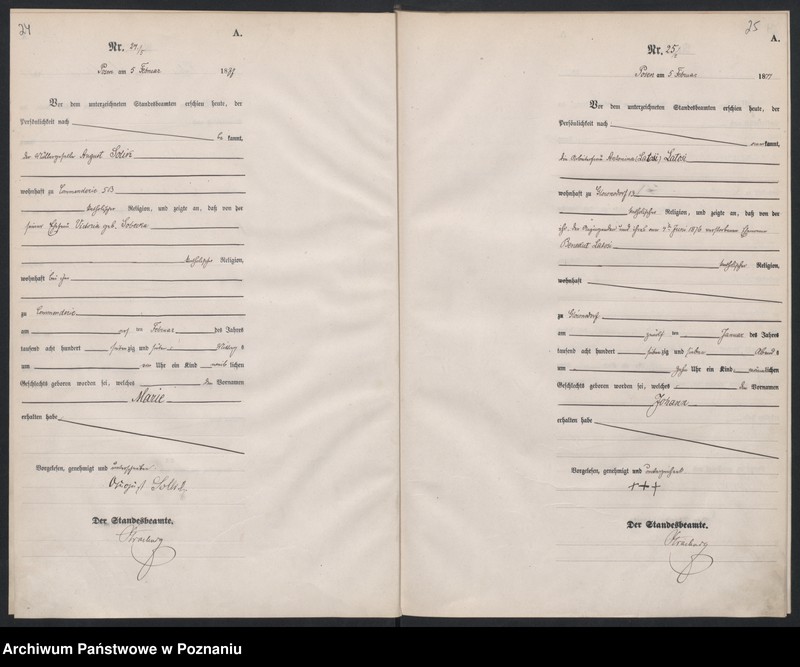 24
A.
Nr. 24
Posen am 5 Februar 1877
Vor dem unterzeichneten Standesbeamten erschien heute, der
Persönlichkeit nach
be kannt,
der Müllergeselle August
wohnhaft zu Commenderie 5B
katholischer Religion, und zeigte an, daß von der
seiner Ehefrau Victoria geb.
katholischer Religion,
wohnhaft bei ihm
zu Commenderie
am ten Februar des Jahres
tausend acht hundert siebenzig und sieben Mittag s
um ein Uhr ein Kind weib lichen
Geschlechts geboren worden sei, welches den Vornamen
Marie
erhalten habe
Vorgelesen, genehmigt und unterschrieben
August
Der Standesbeamte.
25
A.
Nr. 25
Posen am 5 Februar 1877
Vor dem unterzeichneten Standesbeamten erschien heute, der
Persönlichkeit nach
kannt,
die Arbeiterfrau Antonina
wohnhaft zu
katholischer Religion, und zeigte an, daß von der
Juni 1876 verstorbenen Ehemann
Benedict
katholischer Religion,
wohnhaft
zu
am ten Januar des Jahres
tausend acht hundert siebenzig und sieben Abend s
um zehn Uhr ein Kind männlichen
Geschlechts geboren worden sei, welches den Vornamen
Johann
erhalten habe
Vorgelesen, genehmigt und
+++
Der Standesbeamte.
Archiwum Państwowe w Poznaniu